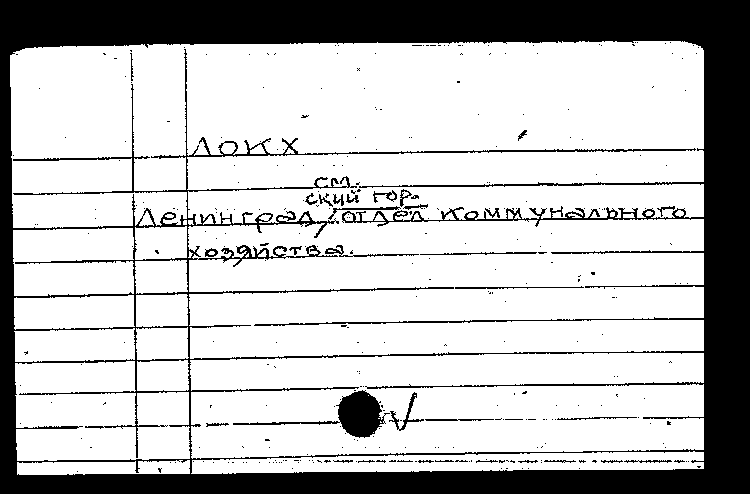 ЛОКХ
см.
ский гор.
Ленинград, отдел коммунального
хозяйства.